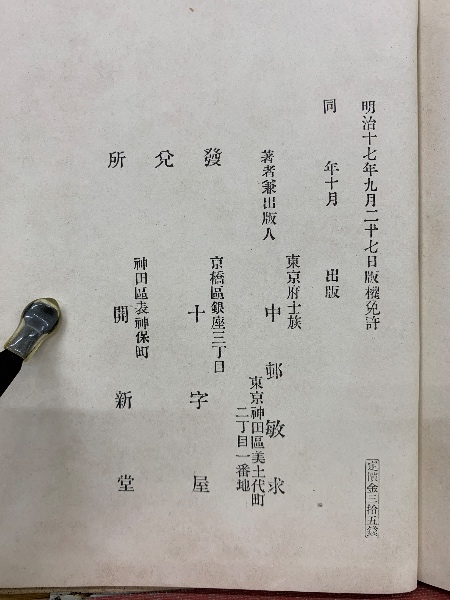 明治十七年九月二十七日版權免許
同 年十月 出版
定價金三拾五錢
東京府士族
著者兼出版人 中邨敏求
東京神田區美土代町
二丁目一番地
發兌所
京橋區銀座三丁目
十字屋
神田區表神保町
開新堂